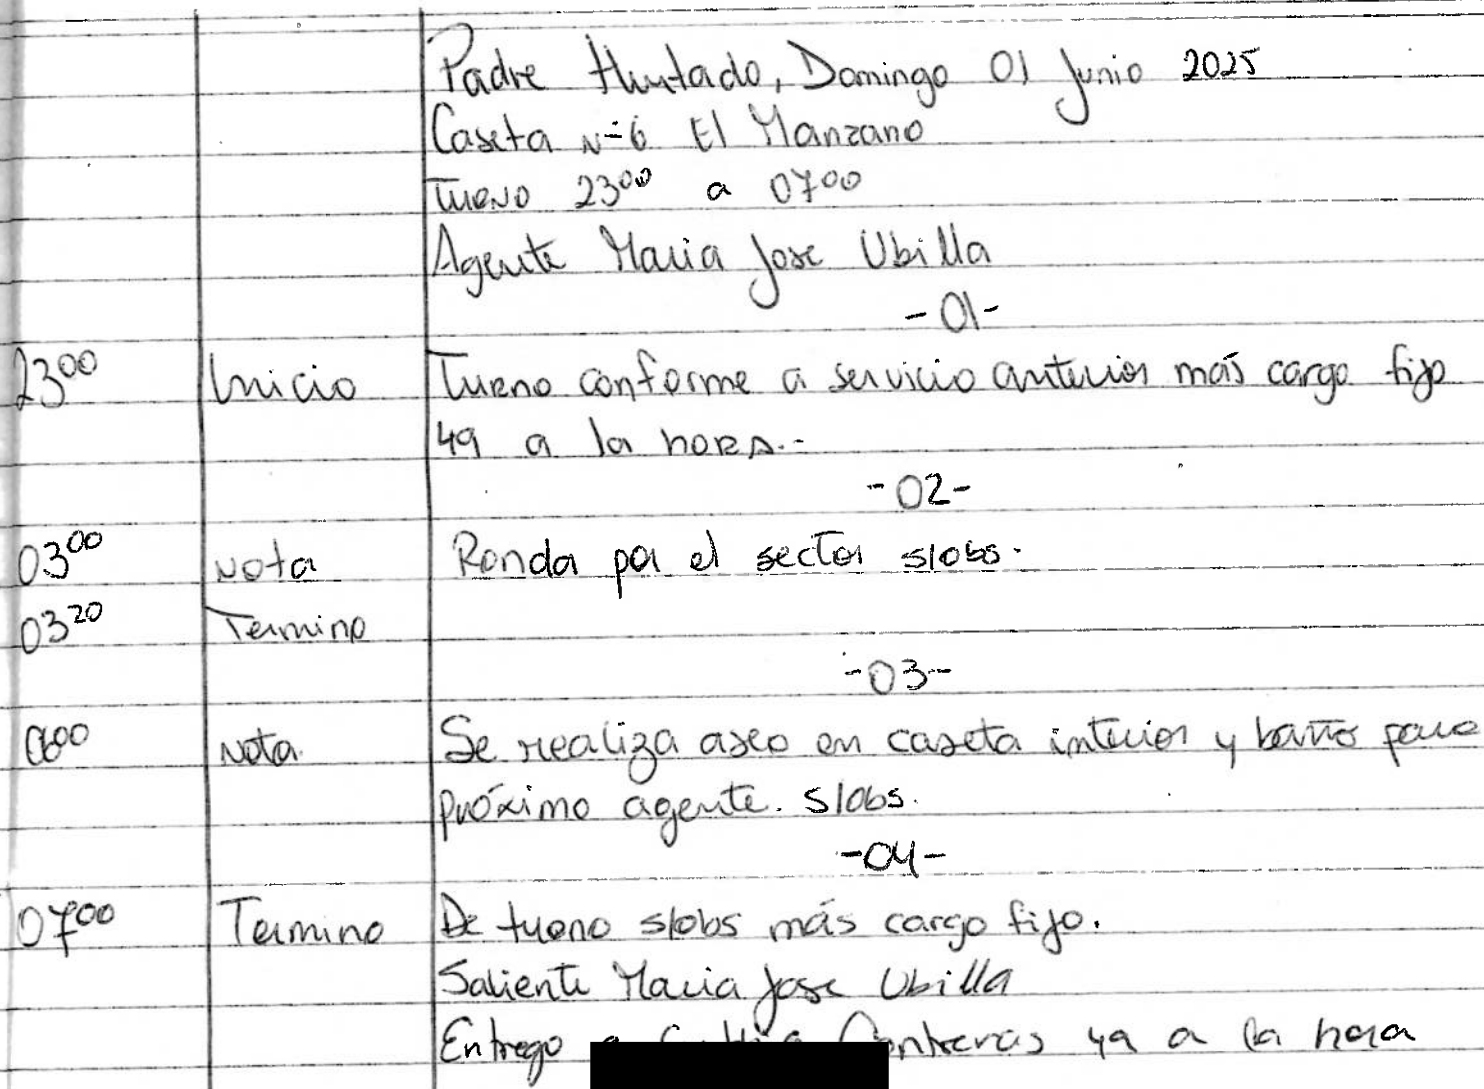 Padre Hurtado, Domingo 01 Junio 2025
Caseta N=6 El Manzano
Tueno 23⁰⁰ a 07⁰⁰
Agente Maria Jose Ubilla
-01-
23⁰⁰ Inicio Tueno conforme a servicio anterior más cargo fijo
49 a la hora.-
-02-
03⁰⁰ Nota Ronda por el sector s/obs.
03²⁰ Termino
-03-
06⁰⁰ Nota Se realiza aseo en caseta interior y baño para
próximo agente. s/obs.
-04-
07⁰⁰ Termino De tueno s/obs más cargo fijo.
Saliente Maria Jose Ubilla
Entrego a Contreras ya a la hora